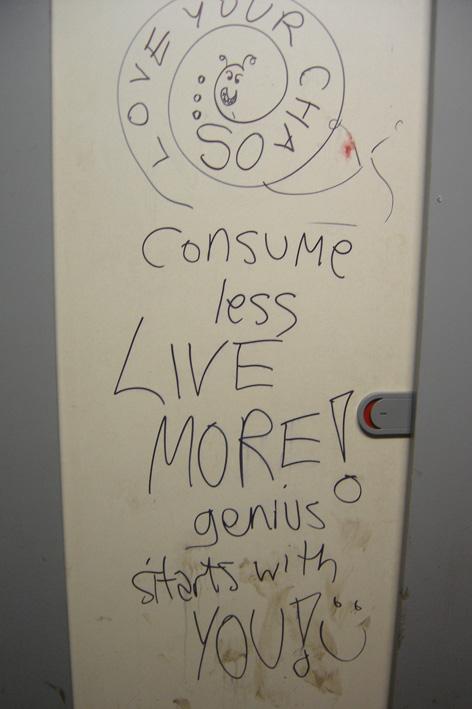 LOVE YOUR CHAOS
consume
less
LIVE
MORE!
genius
starts with
YOU!